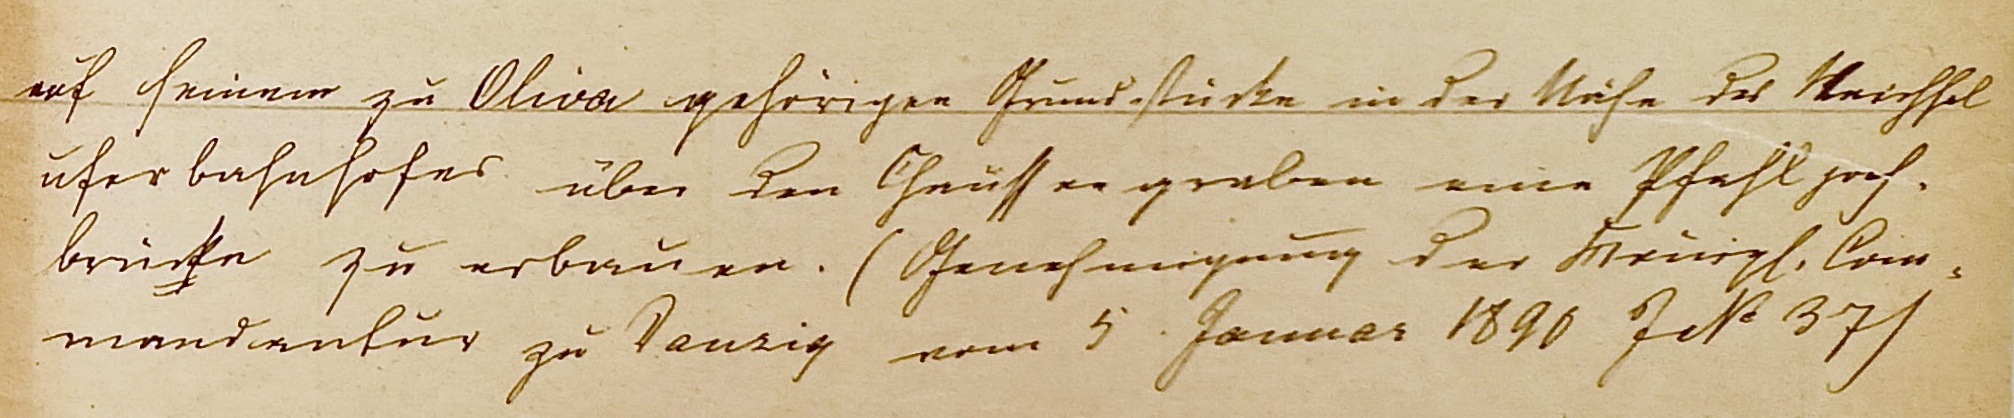 auf seinem zu Oliva gehörigen Grundstücke in der Nähe des Weichsel
uferbahnhofes über den Chausseegraben eine Pfahljoch-
brücke zu erbauen. (Genehmigung der Königl. Com-
mandantur zu Danzig vom 5. Januar 1890 J № 37)